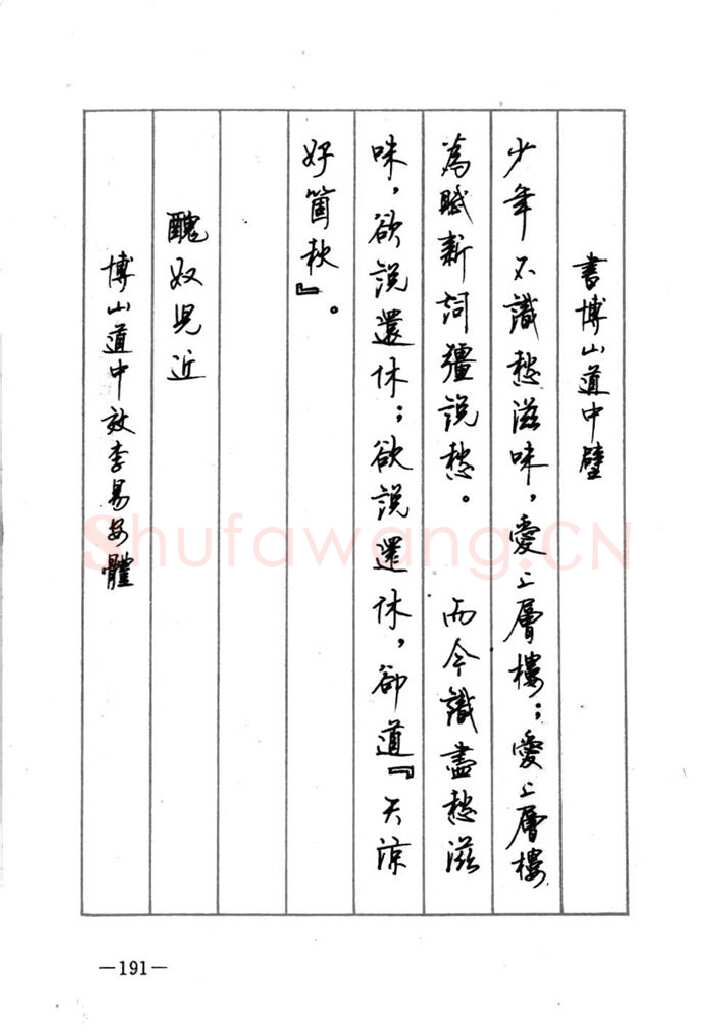 書博山道中壁
少年不識愁滋味，愛上層樓；愛上層樓
為賦新詞彊說愁。　而今識盡愁滋
味，欲說還休；欲說還休，卻道『天涼
好箇秋』。
醜奴兒近
博山道中效李易安體
—191—
Shufawang.CN